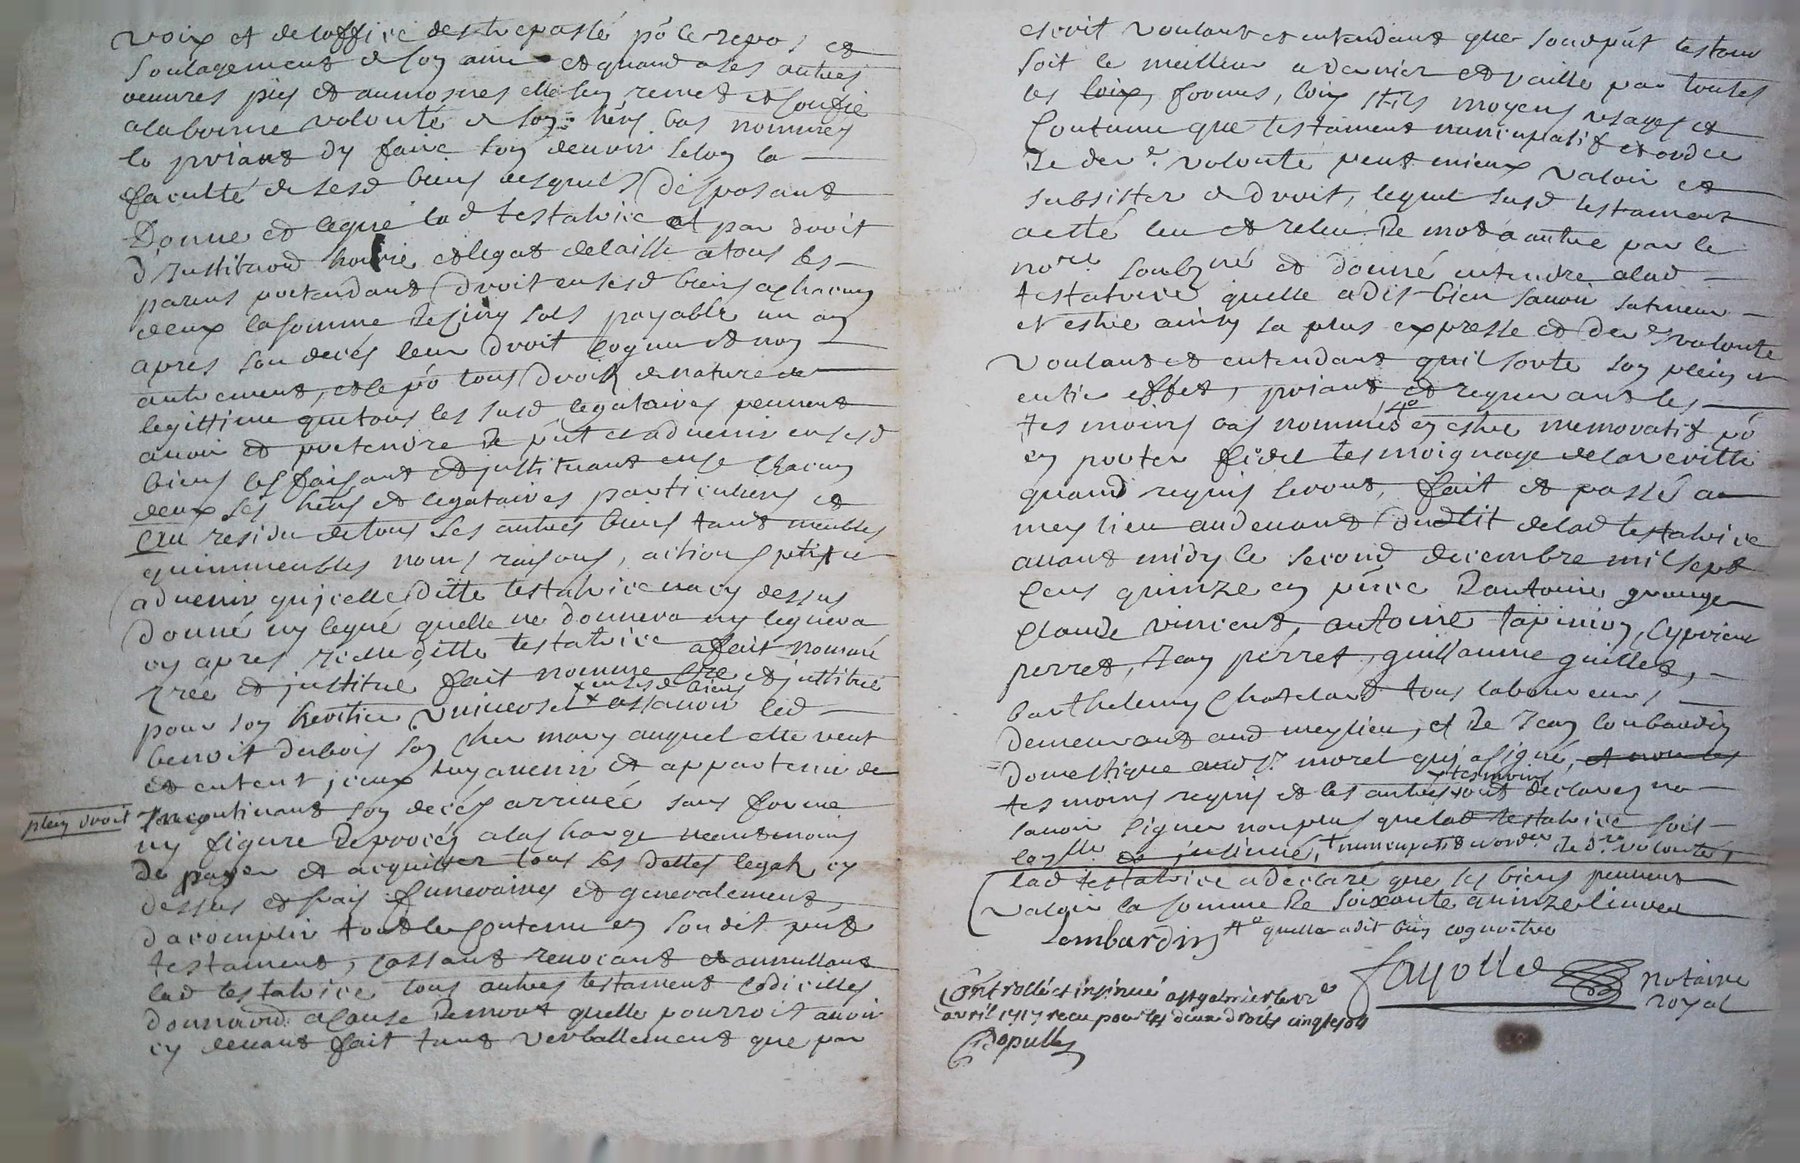 voix et de loffice des trepassé po le repos et
soulagement de son ame et quand a ses autres
oeuvres pies et aumosnes elle sen remet et confie
a la bonne volonté de son hérs bas nommes
le priant dy faire son devoir selon la
faculté de sesd biens desquels disposant
Donne et legue lad testatrice et par droit
d'Institu͠on hoirie et legat delaisse a tous les
parens pretendants droit en sesd biens a chacun
deux la somme de cinq sols payable un an
apres son deces leur droit cognu et non
autrement, et ce po tous droit de nature de
legittime que tous les susd legataires peuvent
avoir et pretendre de pnt et advenir en sesd
biens les faisant et instituant en ce chacun
deux ses hérs et legataires particuliers et
Au residu de tous ses autres biens tant meubles
quimmeubles noms raisons, actions pnts et
advenir qu'jcelle ditte testatrice na cy dessus
donné ny legué quelle ne donnera ny leguera
cy apres jcelle ditte testatrice a fait nommé
créé et institué fait nomme cree et institue
x en sesd biens
pour son heritier universel x assavoir led
benoit dubois son cher mary auquel elle veut
et entent jceux luy avenir et appartenir de
plein droit
Incontinant son deces arrivée sans forme
ny figure de proces a la charge neantmoins
de payer et acquitter tous ses dettes legats cy
dessus et frais funeraires et generalement
dacomplir tout le contenu en son dit pnt
testament, cassant revocant et annullant
lad testatrice tous autres testament codicilles
donna͠on a cause de mort quelle pourroit avoir
cy devant fait tant verballement que par
escrit voulant et entendant que sond pnt testam
soit le meilleur a dernier et vaille par toutes
les loix, formes, loix stils moyens usages et
coutume que testament nuncupatif et ordre
de der.e volonté peut mieux valoir et
subsister de droit, lequel susd testament
a esté leu et releu de mot a autre par le
nore soubzné et donné entendre a lad
testatrice quelle a dit bien savoir
et estre ainsy sa plus expresse et der.e volonte
voulant et entendant quil sorte son plein et
entier effet, priant et requerant les
tesmoins bas nommés en estre memoratif po
en porter fidel tesmoignage de la veritte
quand requis seront, fait et passé au
meylieu audevant du lit de lad testatrice
avant midy le second decembre mil sept
cens quinze en pñce d'antoine grange
Claude vincent, antoine tapinion, cyprien
perret, Jean perret, guillaume guillet,
barthelemy Chatelard tous laboureurs
demeurant aud meylieu, et de Jean lonbardin
domestique aud sr morel qui a signé, et non les
tesmoins
tesmoins requis et les autres x ont declarez ne
savoir signer non plus que lad testatrice soit
+ nuncupatif et ordre de d.re volonte
lad testatrice a declaré que ses biens peuvent
valoir la somme de soixante quinze livres
Lombardin quelle a dit bien cognoitre
fayolle notaire
royal
Controllé et insinué a st galmier le
avril 1717 receu pour les deux droits cinq
Populle